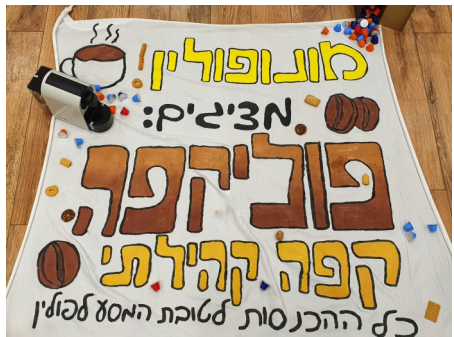 מונופולין
מציגים:
פוליקפה
קפה קהילתי
כל ההכנסות לטובת המסע לפולין